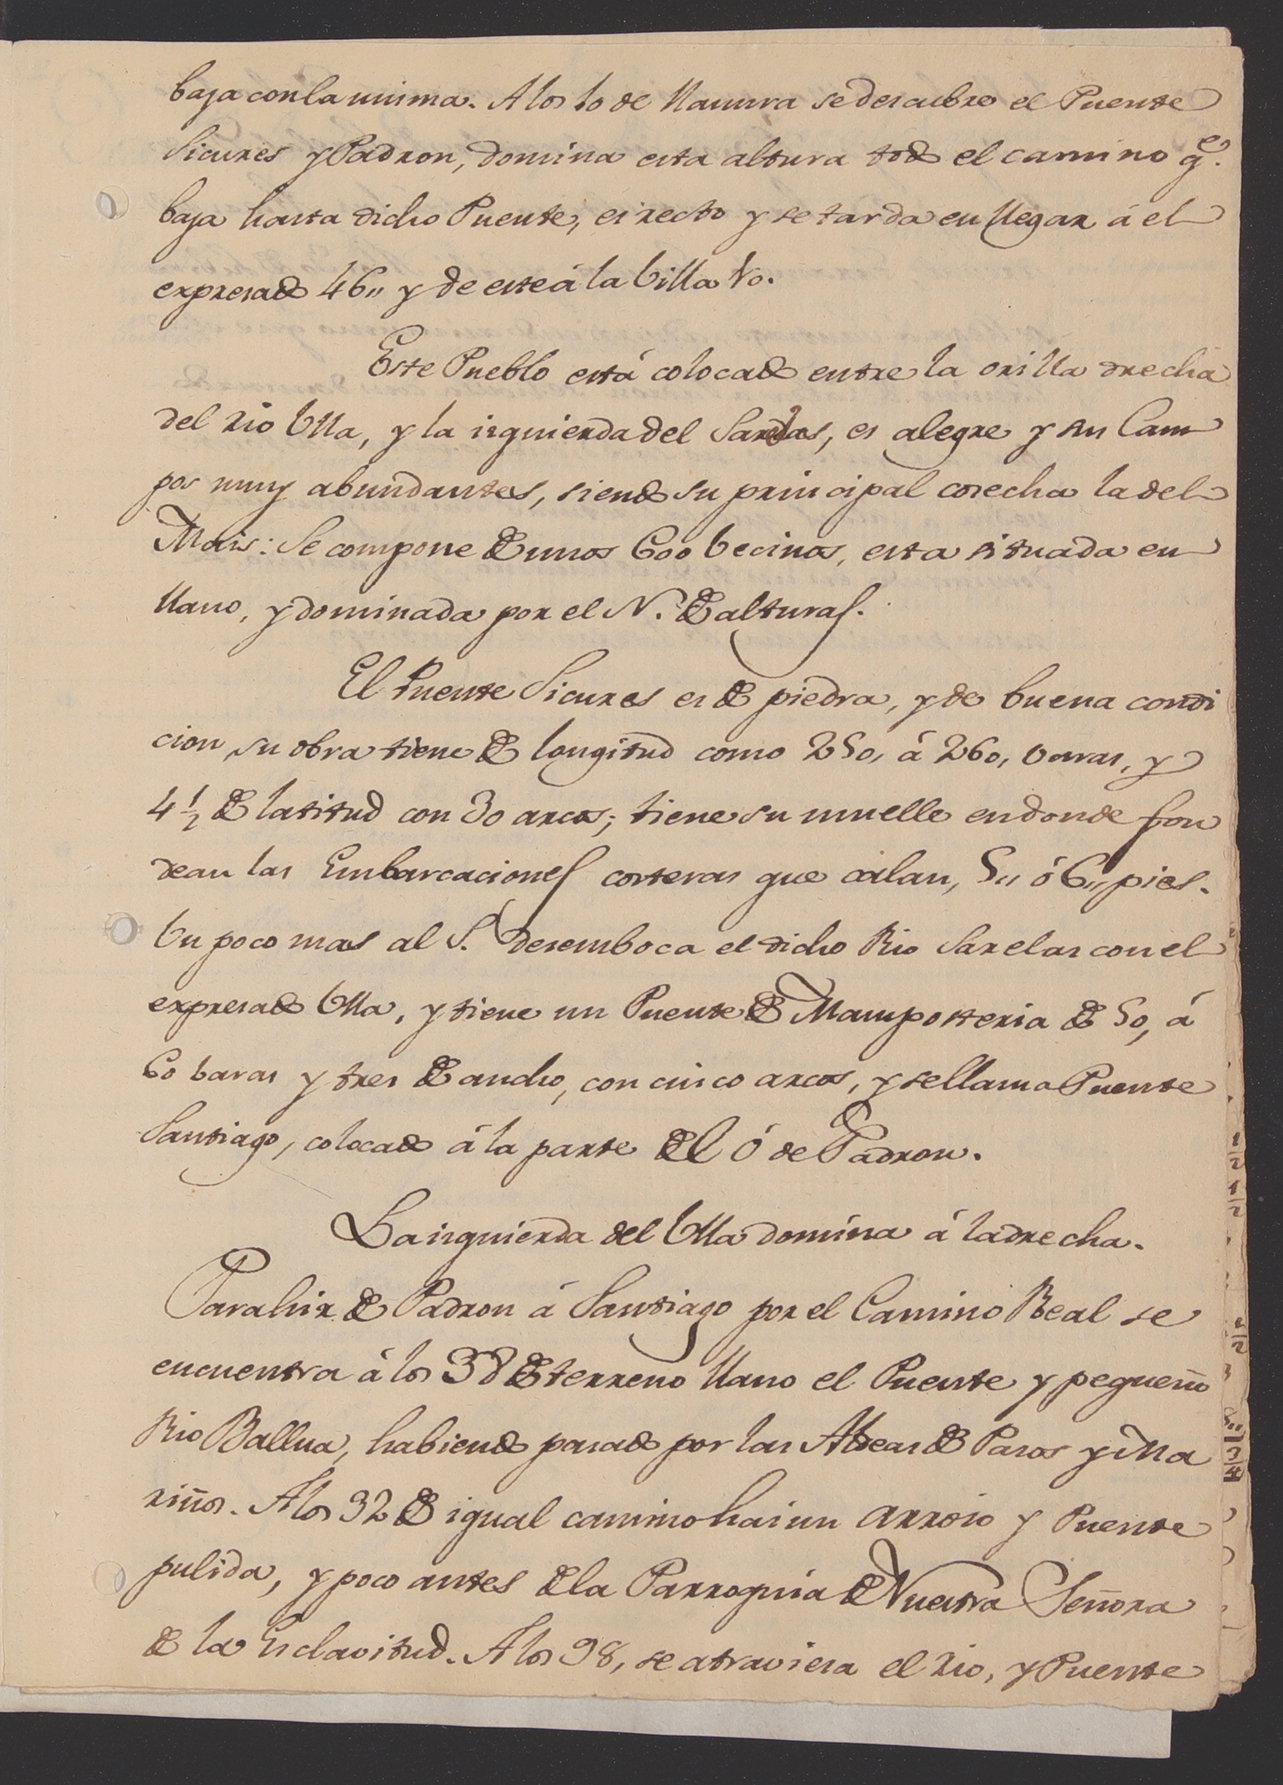 baja con la misma. A los 10 de llanura se descubre el Puente
Sicures y Padron, domina esta altura todo el camino q.e
baja hasta dicho Puente, es recto y se tarda en llegar á el
expresado 46,, y de este á la Villa 10.
Este Pueblo está colocado entre la orilla drecha
del rio Ulla, y la izquierda del Sarelas, es alegre y sus Cam
pos muy abundantes, siendo su principal cosecha la del
Mais: Se compone de unos 600 becinos, esta situada en
llano, y dominada por el N. de alturas.
El Puente Sicures es de piedra, y de buena condi
cion, su obra tiene de longitud como 250, á 260, varas, y
4 1/2 de latitud con 30 arcos; tiene su muelle en donde fon
dean las Embarcaciones costeras que calan, 5,, ó 6,, pies.
Un poco mas al S. desemboca el dicho Rio Sarelas con el
expresado Ulla, y tiene un Puente de Mamposteria de 50, á
60 baras y tres de ancho, con cinco arcos, y se llama Puente
Santiago, colocado á la parte del O de Padron.
La izquierda del Ulla domina á la drecha.
Para hir de Padron á Santiago por el Camino Real se
encuentra á los 38 de terreno llano el Puente y pequeño
Rio Ballua, habiendo pasado por las Aldeas de Pasos y Ma
riños. A los 32 de igual camino hai un arroio y Puente
pulida, y poco antes de la Parroquia de Nuestra Señora
de la Esclavitud. A los 98, se atraviesa el rio, y Puente